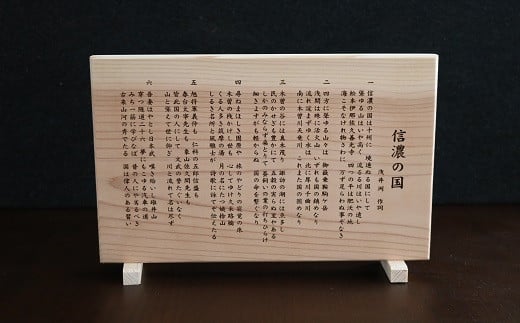 信濃の国
浅井洌 作詞
一 信濃の国は十州に 境連ぬる国にして
聳ゆる山はいや高く 流るる川はいや遠し
松本伊那佐久善光寺 四つの平は肥沃の地
海こそなけれ物さわに 万ず足らわぬ事ぞなき
二 四方に聳ゆる山々は 御嶽乗鞍駒ヶ岳
浅間は殊に活火山 いずれも国の鎮めなり
流れ淀まずゆく水は 北に犀川千曲川
南に木曽川天竜川 これまた国の固めなり
三 木曽の谷には真木茂り 諏訪の湖には魚多し
民のかせぎも豊かにて 五穀の実らぬ里やある
しかのみならず桑とりて 蚕飼いの業の打ちひらけ
細きよすがも軽からぬ 国の命を繋ぐなり
四 尋ねまほしき園原や 旅のやどりの寝覚の床
木曽の棧かけし世も 心してゆけ久米路橋
くる人多き筑摩の湯 月の名にたつ姨捨山
しるき名所と風雅士が 詩歌に詠てぞ伝えたる
五 旭将軍義仲も 仁科の五郎信盛も
春台太宰先生も 象山佐久間先生も
皆此国の人にして 文武の誉たぐいなく
山と聳えて世に仰ぎ 川と流れて名は尽ず
六 吾妻はやとし日本武 嘆き給いし碓氷山
穿つ隧道二十六 夢にもこゆる汽車の道
みち一筋に学びなば 昔の人にや劣るべき
古来山河の秀でたる 国は偉人のある習い